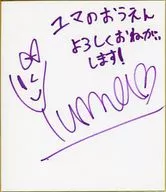 ユマのおうえん
よろしくおねがい
します!
yuma♡